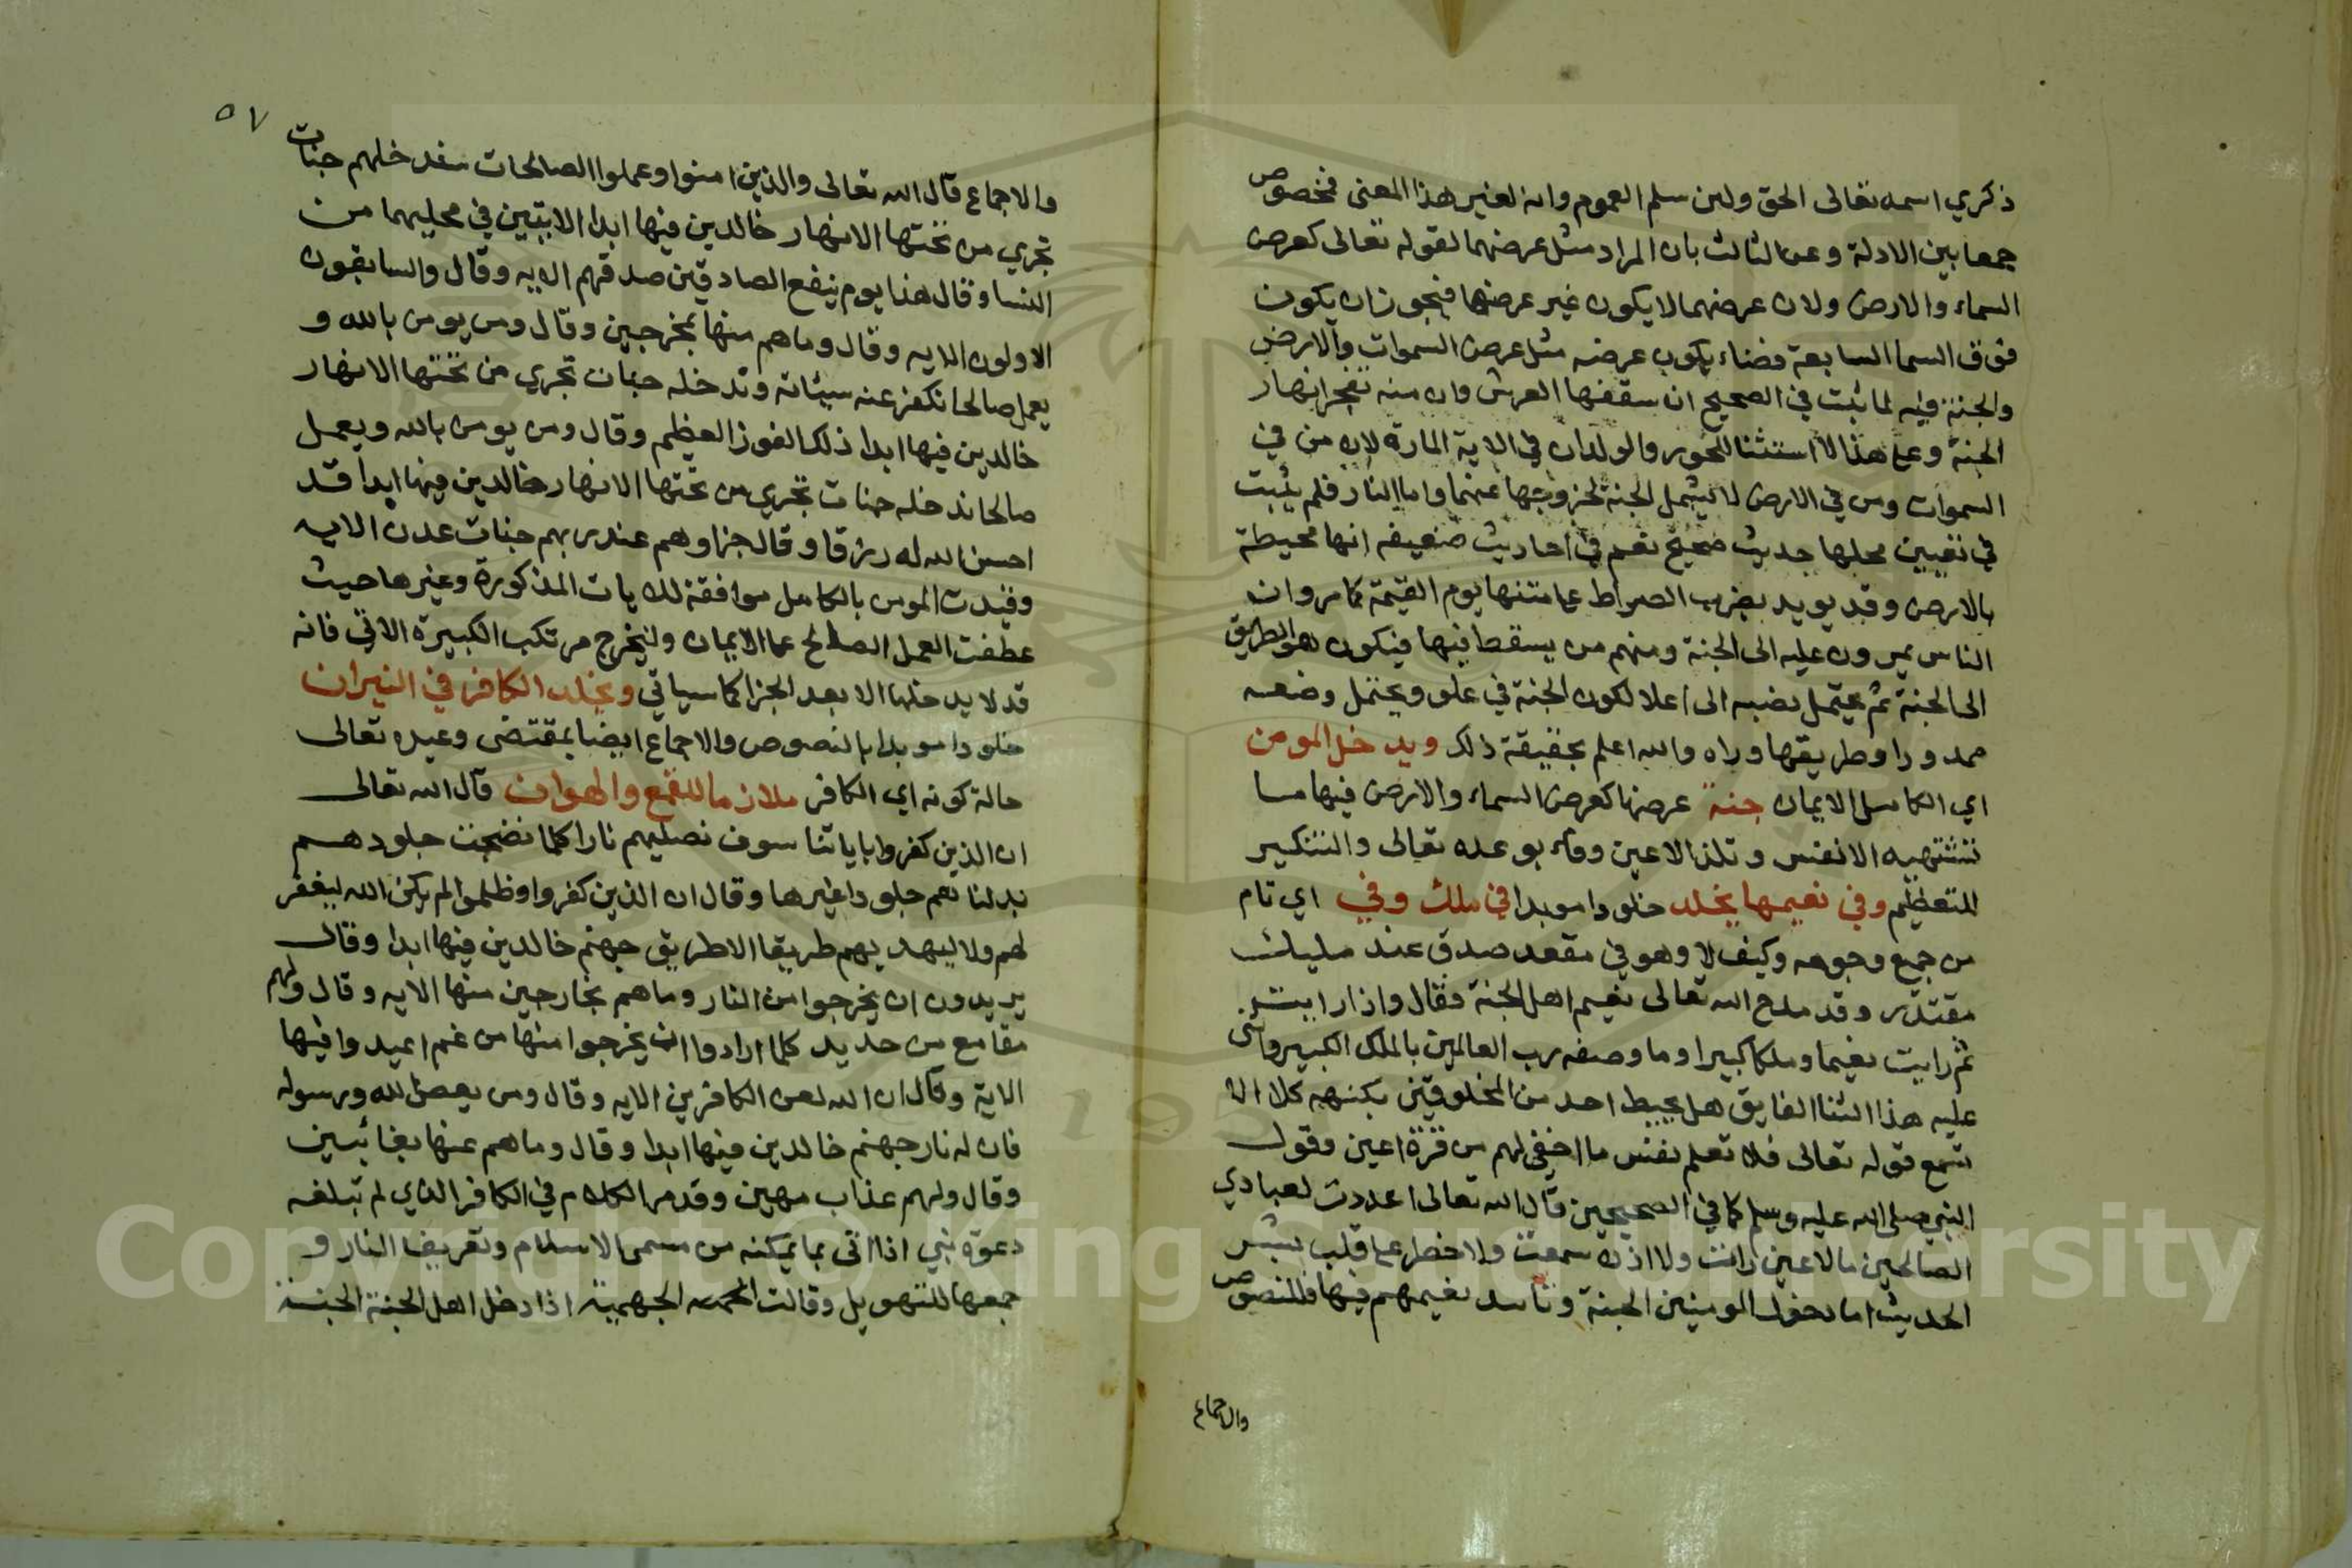 ذكري اسمه تعالى الحق ولئن سلم العموم وانه لغير هذا المعنى فمخصوص
جمعا بين الادلة وعن الثالث بان المراد مثل عرضهما لقوله تعالى كعرض
السماء والارض ولان عرضهما لا يكون غير عرضها فيجوز ان يكون
فوق السما السابعة فضاء يكون عرضه مثل عرض السموات والارض
والجنة فيه لما ثبت في الصحيح ان سقفها العرش وان منه تفجر انهار
الجنة وعلى هذا لا استثنا للحور والولدان في الاية المارة لان من في
السموات ومن في الارض لا يشمل الجنة لخروجها عنهما واما النار فلم يثبت
في تعيين محلها حديث صحيح نعم في احاديث ضعيفه انها محيطة
بالارض وقد يويد بضرب الصراط على متنها يوم القيمة كما مر وان
الناس يمرون عليه الى الجنة ومنهم من يسقط فيها فيكون هو الطريق
الى الجنة ثم يحتمل نصبه الى اعلا لكون الجنة في علو ويحتمل وضعه
ممدودا وطريقها وراه والله اعلم بحقيقة ذلك ويدخل المومن
اي الكامل الايمان جنة عرضها كعرض السماء والارض فيها ما
تشتهيه الانفس وتلذ الاعين وفاء بوعده تعالى والتنكير
للتعظيم وفي نعيمها يخلد خلودا موبدا في ملك وفي اي تام
من جميع وجوهه وكيف لا وهو في مقعد صدق عند مليك
مقتدر وقد مدح الله تعالى نعيم اهل الجنة فقال واذا رايت
ثم رايت نعيما وملكا كبيرا وما وصفه رب العالمين بالملك الكبير واثنى
عليه هذا الثنا الفايق هل يحيط احد من المخلوقين بكنهه كلا الا
تسمع قوله تعالى فلا تعلم نفس ما اخفي لهم من قرة اعين وقول
النبي صلى الله عليه وسلم كما في الصحيحين قال الله تعالى اعددت لعبادي
الصالحين ما لا عين رات ولا اذن سمعت ولا خطر على قلب بشر
الحديث اما دخول المومنين الجنة وتابيد نعيمهم فيها فللنصوص
والاجماع
٥٧
والاجماع قال الله تعالى والذين امنوا وعملوا الصالحات سندخلهم جنات
تجري من تحتها الانهار خالدين فيها ابدا الايتين في محليهما من
النسا وقال هذا يوم ينفع الصادقين صدقهم الايه وقال والسابقون
الاولون الايه وقال وما هم منها بمخرجين وقال ومن يومن بالله و
يعمل صالحا نكفر عنه سيئاته وندخله جنات تجري من تحتها الانهار
خالدين فيها ابدا ذلك الفوز العظيم وقال ومن يومن بالله ويعمل
صالحا ندخله جنات تجري من تحتها الانهار خالدين فيها ابدا قد
احسن الله له رزقا وقال جزاوهم عند ربهم جنات عدن الايه
وقيدت المومن بالكامل موافقة للايات المذكورة وغيرها حيث
عطفت العمل الصالح على الايمان وليخرج مرتكب الكبيرة الاتي فانه
قد لا يدخلها الا بعد الجزا كما سياتي ويخلد الكافر في النيران
خلودا موبدا بالنصوص والاجماع ايضا بمقتضى وعيده تعالى
حالة كونه اي الكافر ملازما للقمع والهوان قال الله تعالى
ان الذين كفروا باياتنا سوف نصليهم نارا كلما نضجت جلودهم
بدلناهم جلودا غيرها وقال ان الذين كفروا وظلموا لم يكن الله ليغفر
لهم ولا ليهديهم طريقا الا طريق جهنم خالدين فيها ابدا وقال
يريدون ان يخرجوا من النار وما هم بخارجين منها الايه وقال ولهم
مقامع من حديد كلما ارادوا ان يخرجوا منها من غم اعيدوا فيها
الاية وقال ان الله لعن الكافرين الايه وقال ومن يعص الله ورسوله
فان له نار جهنم خالدين فيها ابدا وقال وما هم عنها بغائبين
وقال ولهم عذاب مهين وقد مر الكلام في الكافر الذي لم تبلغه
دعوة نبي اذا اتى بما يمكنه من مسمى الاسلام وتعريف النار و
جمعها للتهويل وقالت الجهمية اذا دخل اهل الجنة الجنة
Copyright © King Saud University
1957